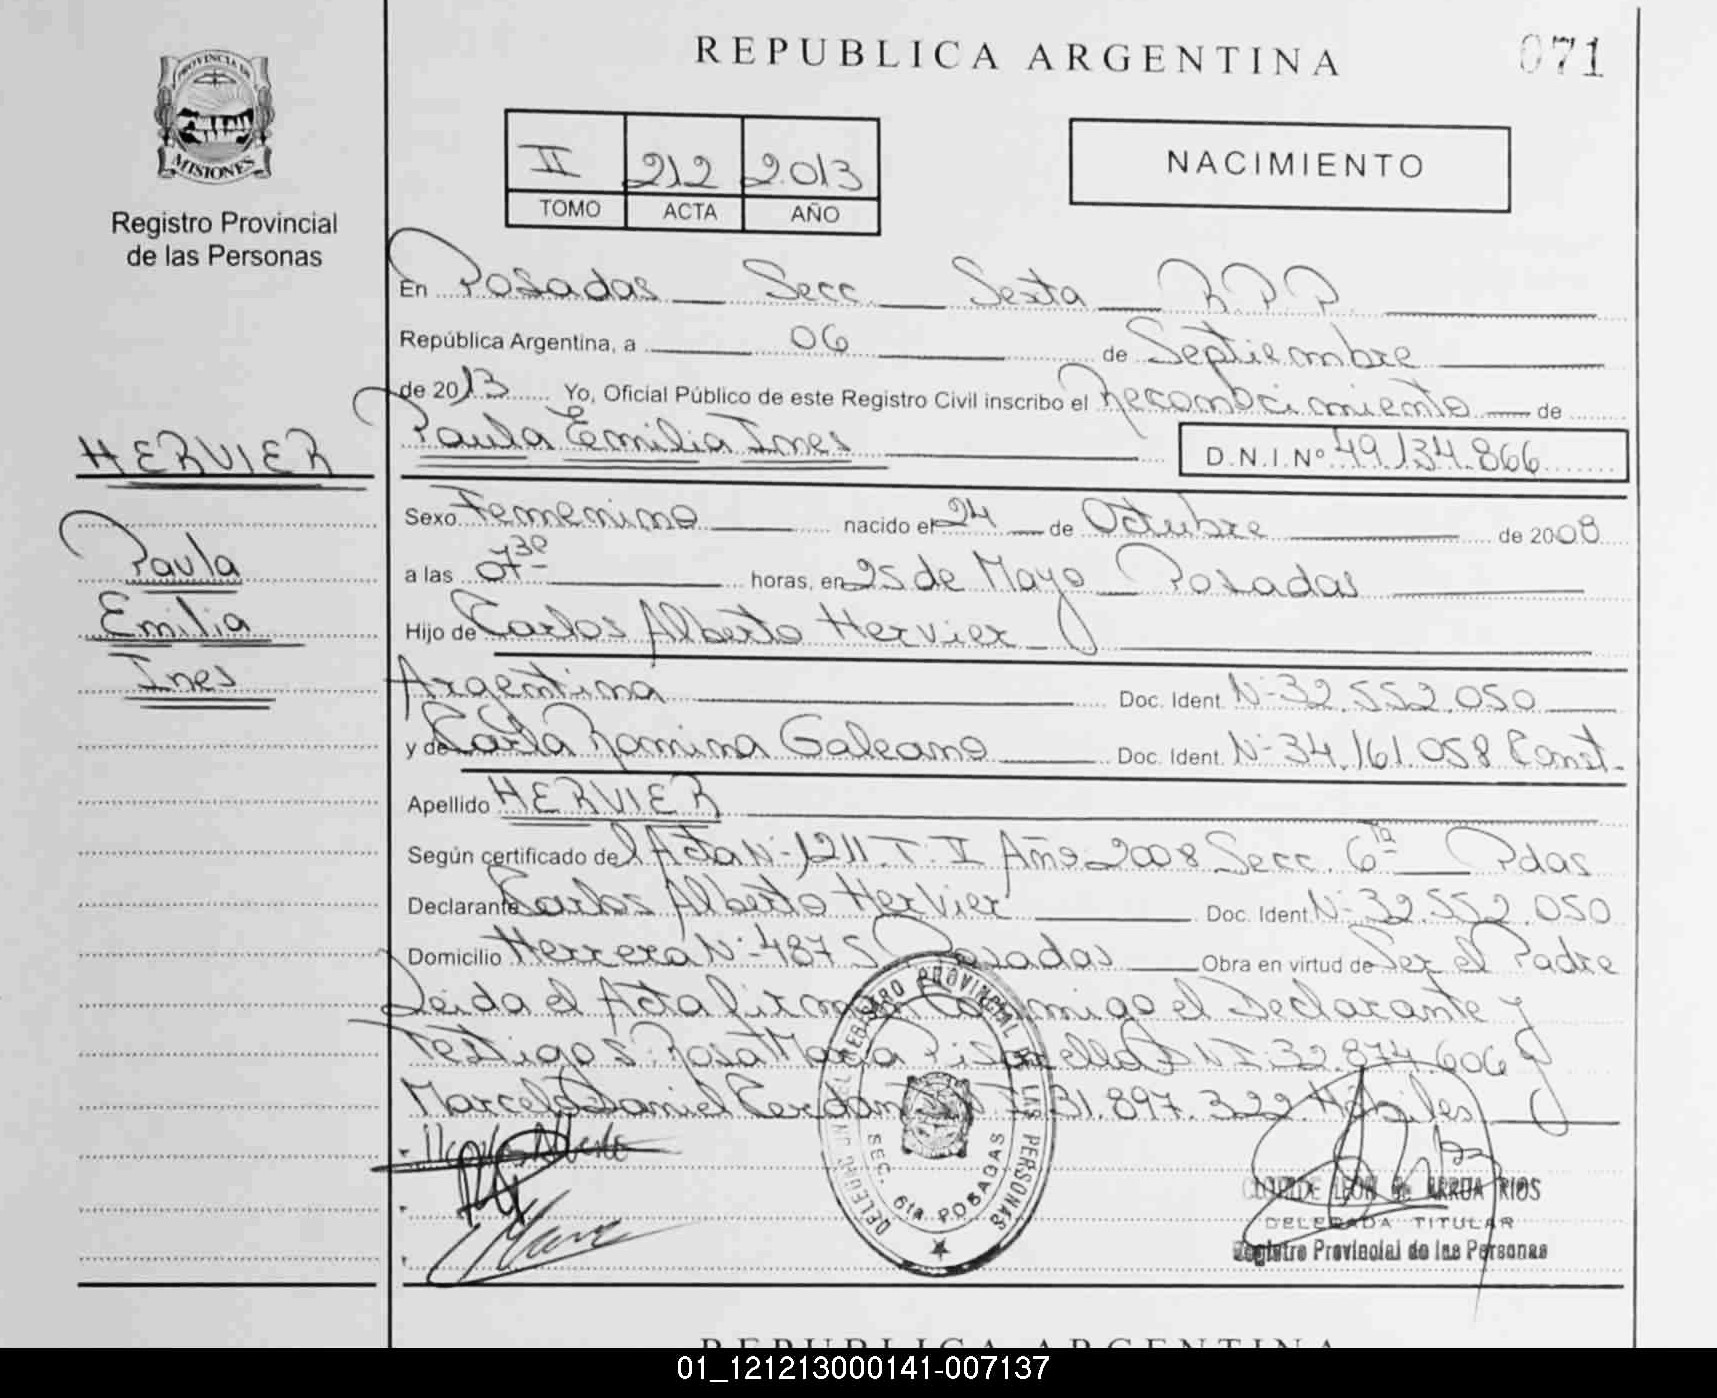 REPUBLICA ARGENTINA
071
PROVINCIA DE
MISIONES
Registro Provincial
de las Personas
II 212 2.013
TOMO ACTA AÑO
NACIMIENTO
En Posadas Secc Sexta R.P.P.
República Argentina, a 06 de Septiembre
de 2013 Yo, Oficial Público de este Registro Civil inscribo el Reconocimiento de
HERVIER
Paula Emilia Ines D.N.I.Nº 49.134.866
Sexo Femenino nacido el 24 de Octubre de 2008
Paula
a las 07 30 horas, en 25 de Mayo Posadas
Emilia
Hijo de Carlos Alberto Hervier
Ines
Argentina Doc. Ident. Nº 32.552.050
y de Carla Romina Galeano Doc. Ident. Nº 34.161.058 Const.
Apellido HERVIER
Según certificado del Acta Nº 1211 T. II Año 2008 Secc. 6ta Pdas
Declarante Carlos Alberto Hervier Doc. Ident. Nº 32.552.050
Domicilio Herrera Nº 4875 Posadas Obra en virtud de Ser el Padre
Leida el Acta firman conmigo el Declarante y
Testigos: Rosa Maria DNI: 32.874.606 y
Marcelo Daniel 31.897.322 Hábiles
REGISTRO PROVINCIAL DE LAS PERSONAS
SEC. 6ta POSADAS
LEON de ARRUA RIOS
DELEGADA TITULAR
Registro Provincial de las Personas
REPUBLICA ARGENTINA
01_121213000141-007137